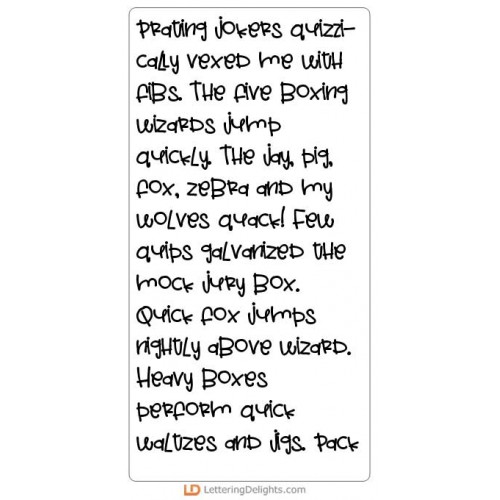 Prating jokers quizzi-
cally vexed me with
fibs. The five boxing
wizards jump
quickly. The jay, pig,
fox, zebra and my
wolves quack! Few
quips galvanized the
mock jury box.
Quick fox jumps
nightly above wizard.
Heavy boxes
perform quick
waltzes and jigs. Pack
LD LetteringDelights.com